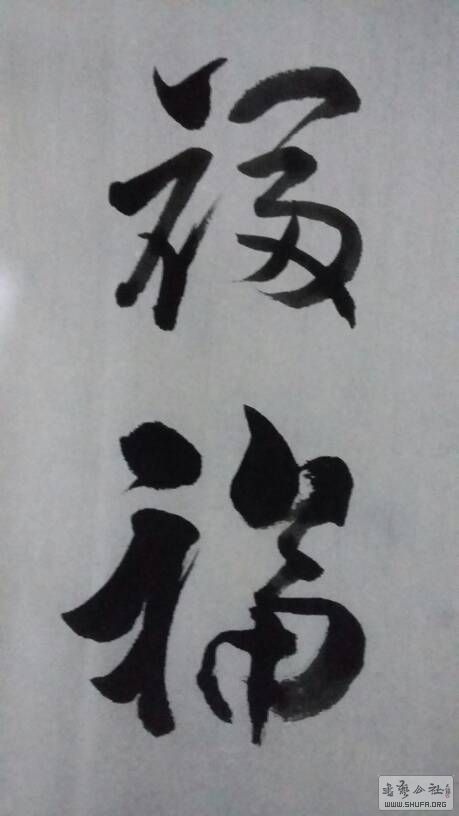 福
福
书艺公社
WWW.SHUFA.ORG